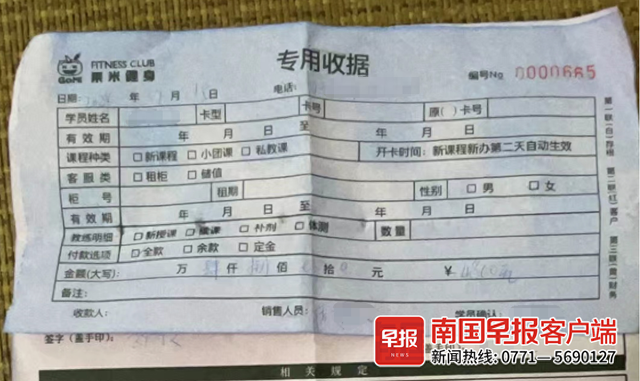 GOME FITNESS CLUB
果米健身
专用收据
编号No 0000665
日期: 年 月 电话:
学员姓名 卡型 卡号 原( )卡号
有效期 年 月 日 至 年 月 日
课程种类 □新课程 □小团课 □私教课 开卡时间: 新课程新办第二天自动生效
客服类 □租柜 □储值
柜号 租期 性别 □男 □女
有效期 年 月 日 至 年 月 日
教练明细 □新授课 □续课 □补剂 □体测 数量
付款选项 □全款 □余款 □定金
金额(大写): 万 肆仟 捌佰 拾 元 ¥
备注:
收款人: 销售人员: 学员确认:
第一联(白)存根 第二联(红)客户 第三联(黄)财务
签字(盖手印):
相关规定
早报 NEWS 南国早报客户端
新闻热线: 0771—5690127